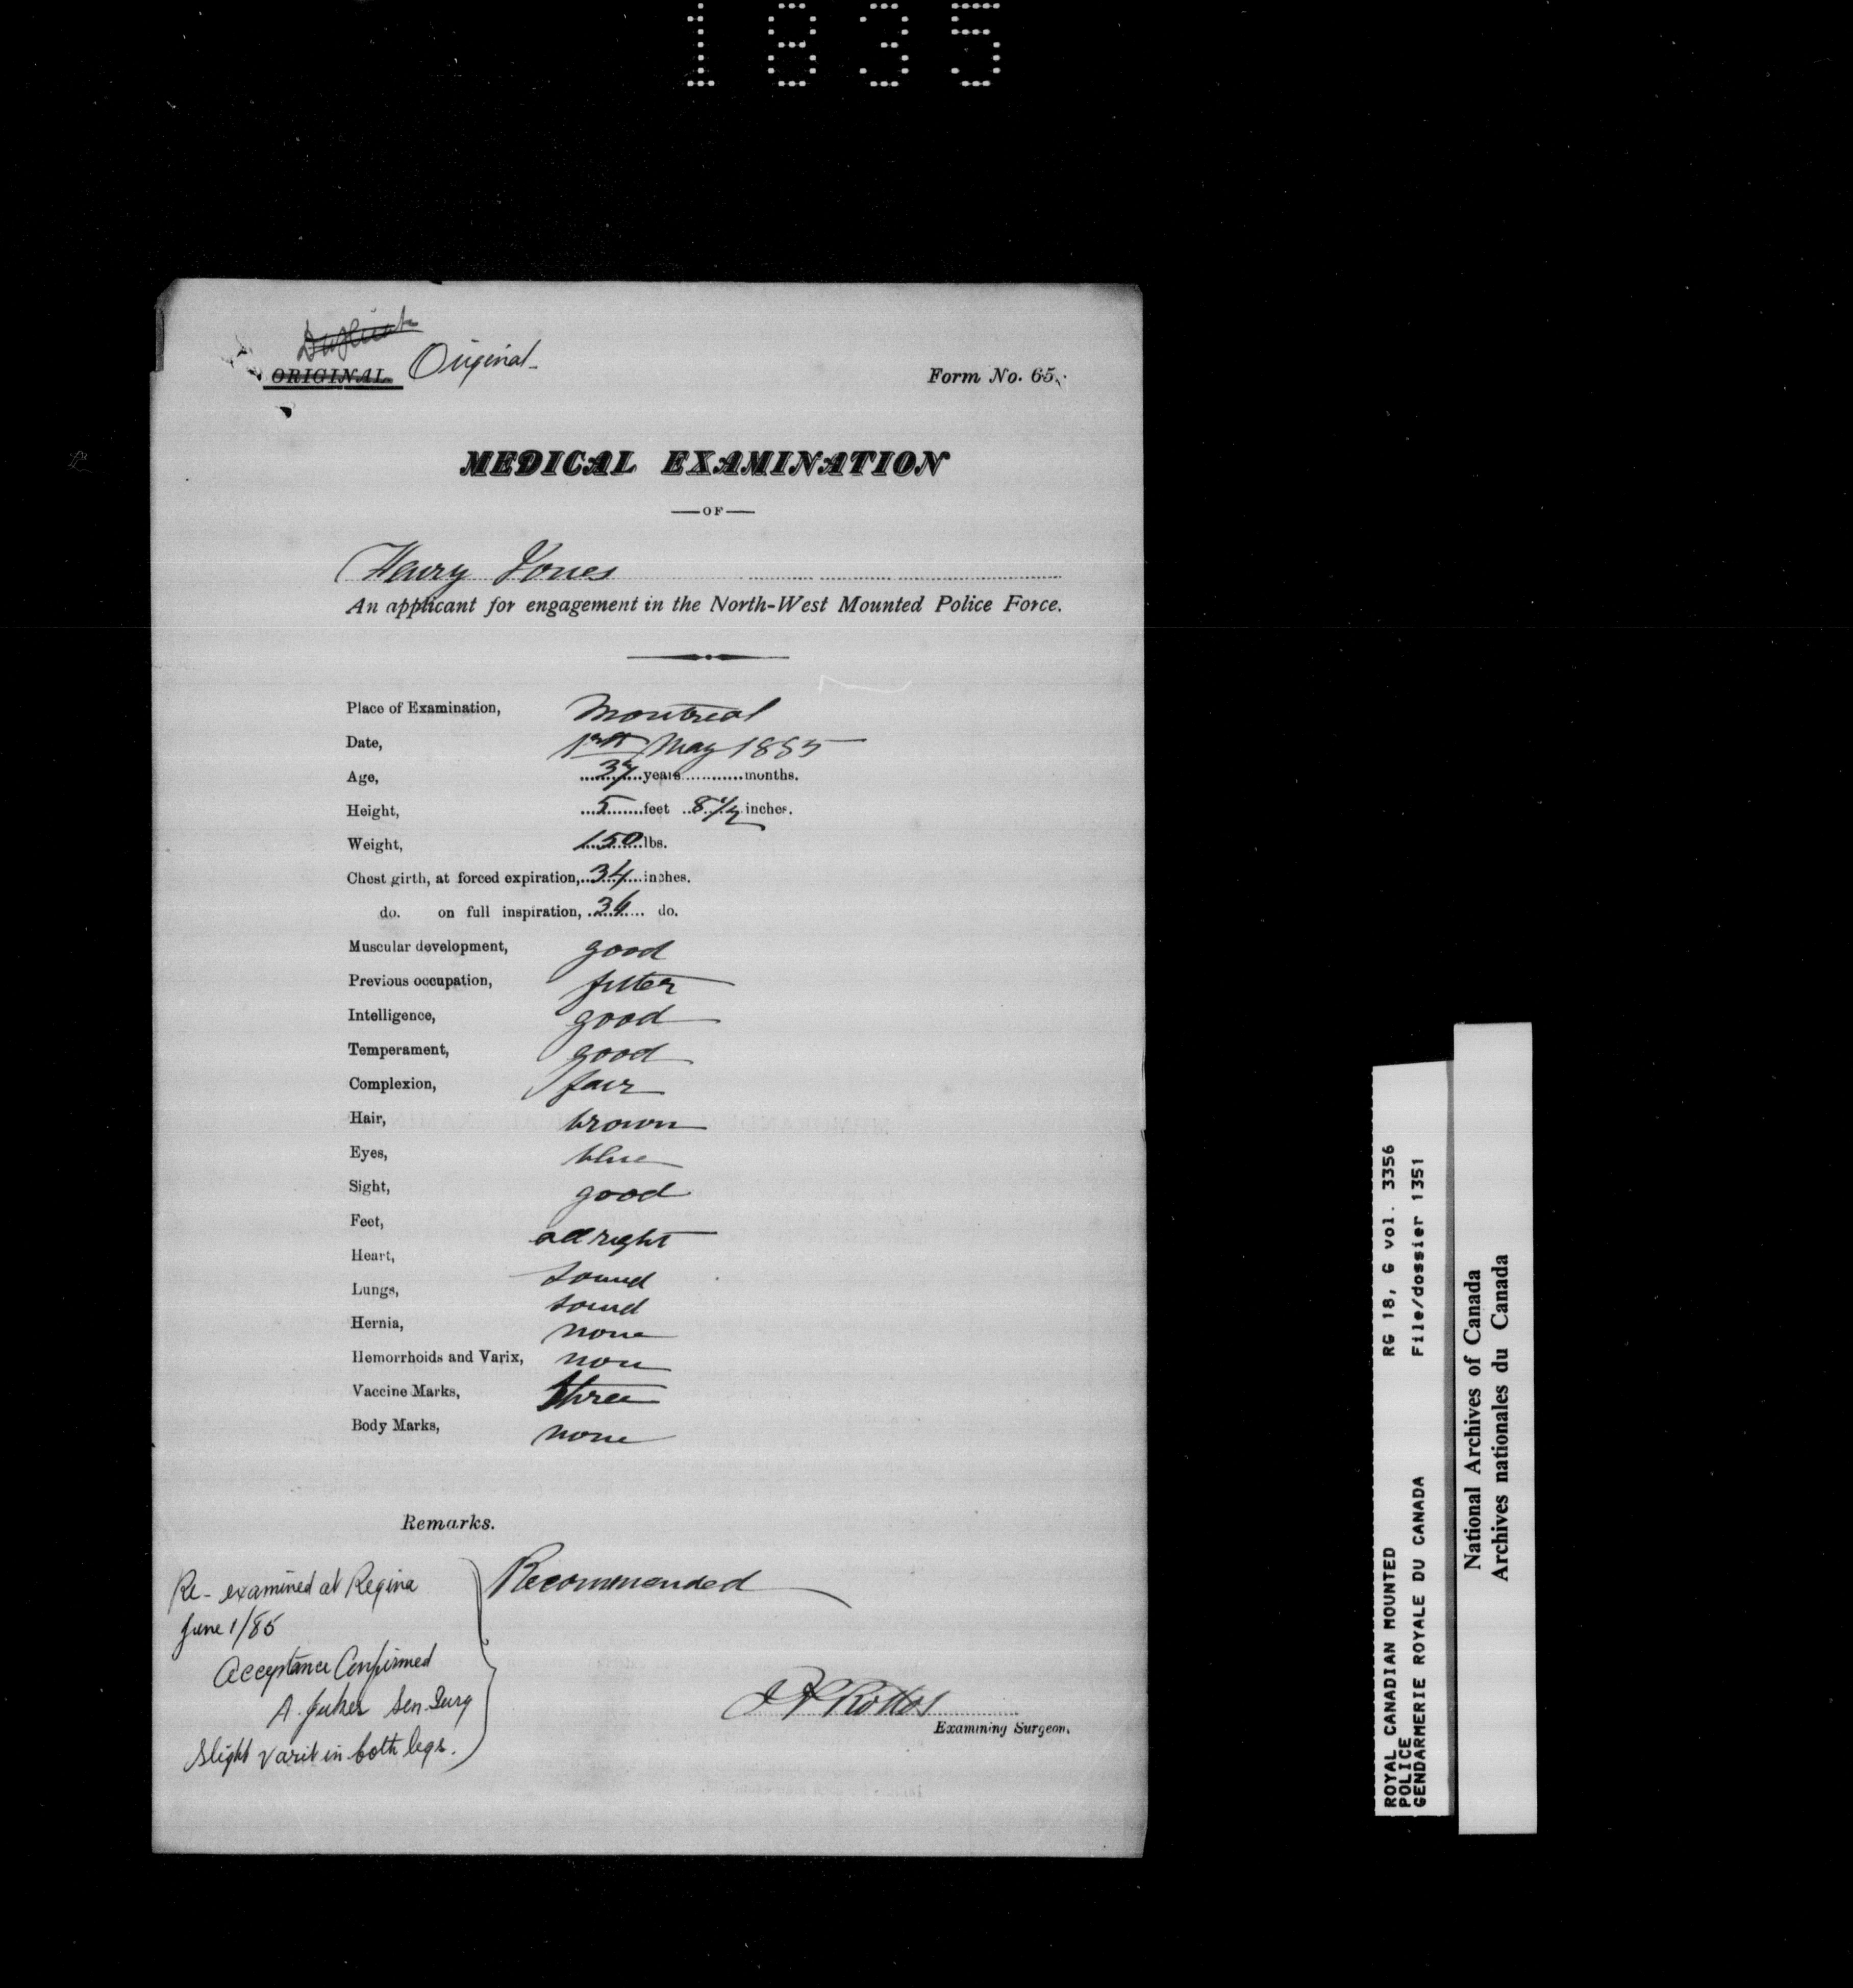 1835
Duplicate
ORIGINAL Original
Form No. 65.
MEDICAL EXAMINATION
OF
Henry Jones
An applicant for engagement in the North-West Mounted Police Force.
Place of Examination, Montreal
Date, May 1885
Age, 37 years months.
Height, 5 feet 8 1/2 inches.
Weight, 150 lbs.
Chest girth, at forced expiration, 34 inches.
do. on full inspiration, 36 do.
Muscular development, good
Previous occupation, fitter
Intelligence, good
Temperament, good
Complexion, fair
Hair, brown
Eyes, blue
Sight, good
Feet, all right
Heart, sound
Lungs, sound
Hernia, none
Hemorrhoids and Varix, non
Vaccine Marks, three
Body Marks, none
Remarks.
Recommended
Re-examined at Regina
June 1/85
Acceptance Confirmed
A. Jukes Sen. Surg
Slight varix in both legs.
Examining Surgeon.
ROYAL CANADIAN MOUNTED
POLICE
GENDARMERIE ROYALE DU CANADA
RG 18, G vol. 3356
File/dossier 1351
National Archives of Canada
Archives nationales du Canada